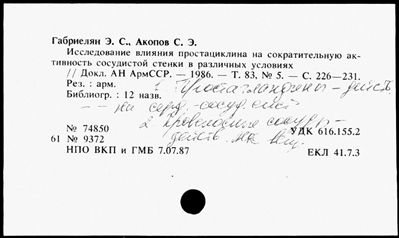 Габриелян Э. С., Акопов С. Э.
Исследование влияния простациклина на сократительную ак-
тивность сосудистой стенки в различных условиях
// Докл. АН АрмССР. — 1986. — Т. 83, № 5. — С. 226—231.
Рез. : арм.
1 Простагландины - действ
Библиогр. : 12 назв.
— — на серд.-сосуд. сист
2 Кровеносные сосуды -
№ 74850
УДК 616.155.2
действ.
61 № 9372
НПО ВКП и ГМБ 7.07.87
ЕКЛ 41.7.3